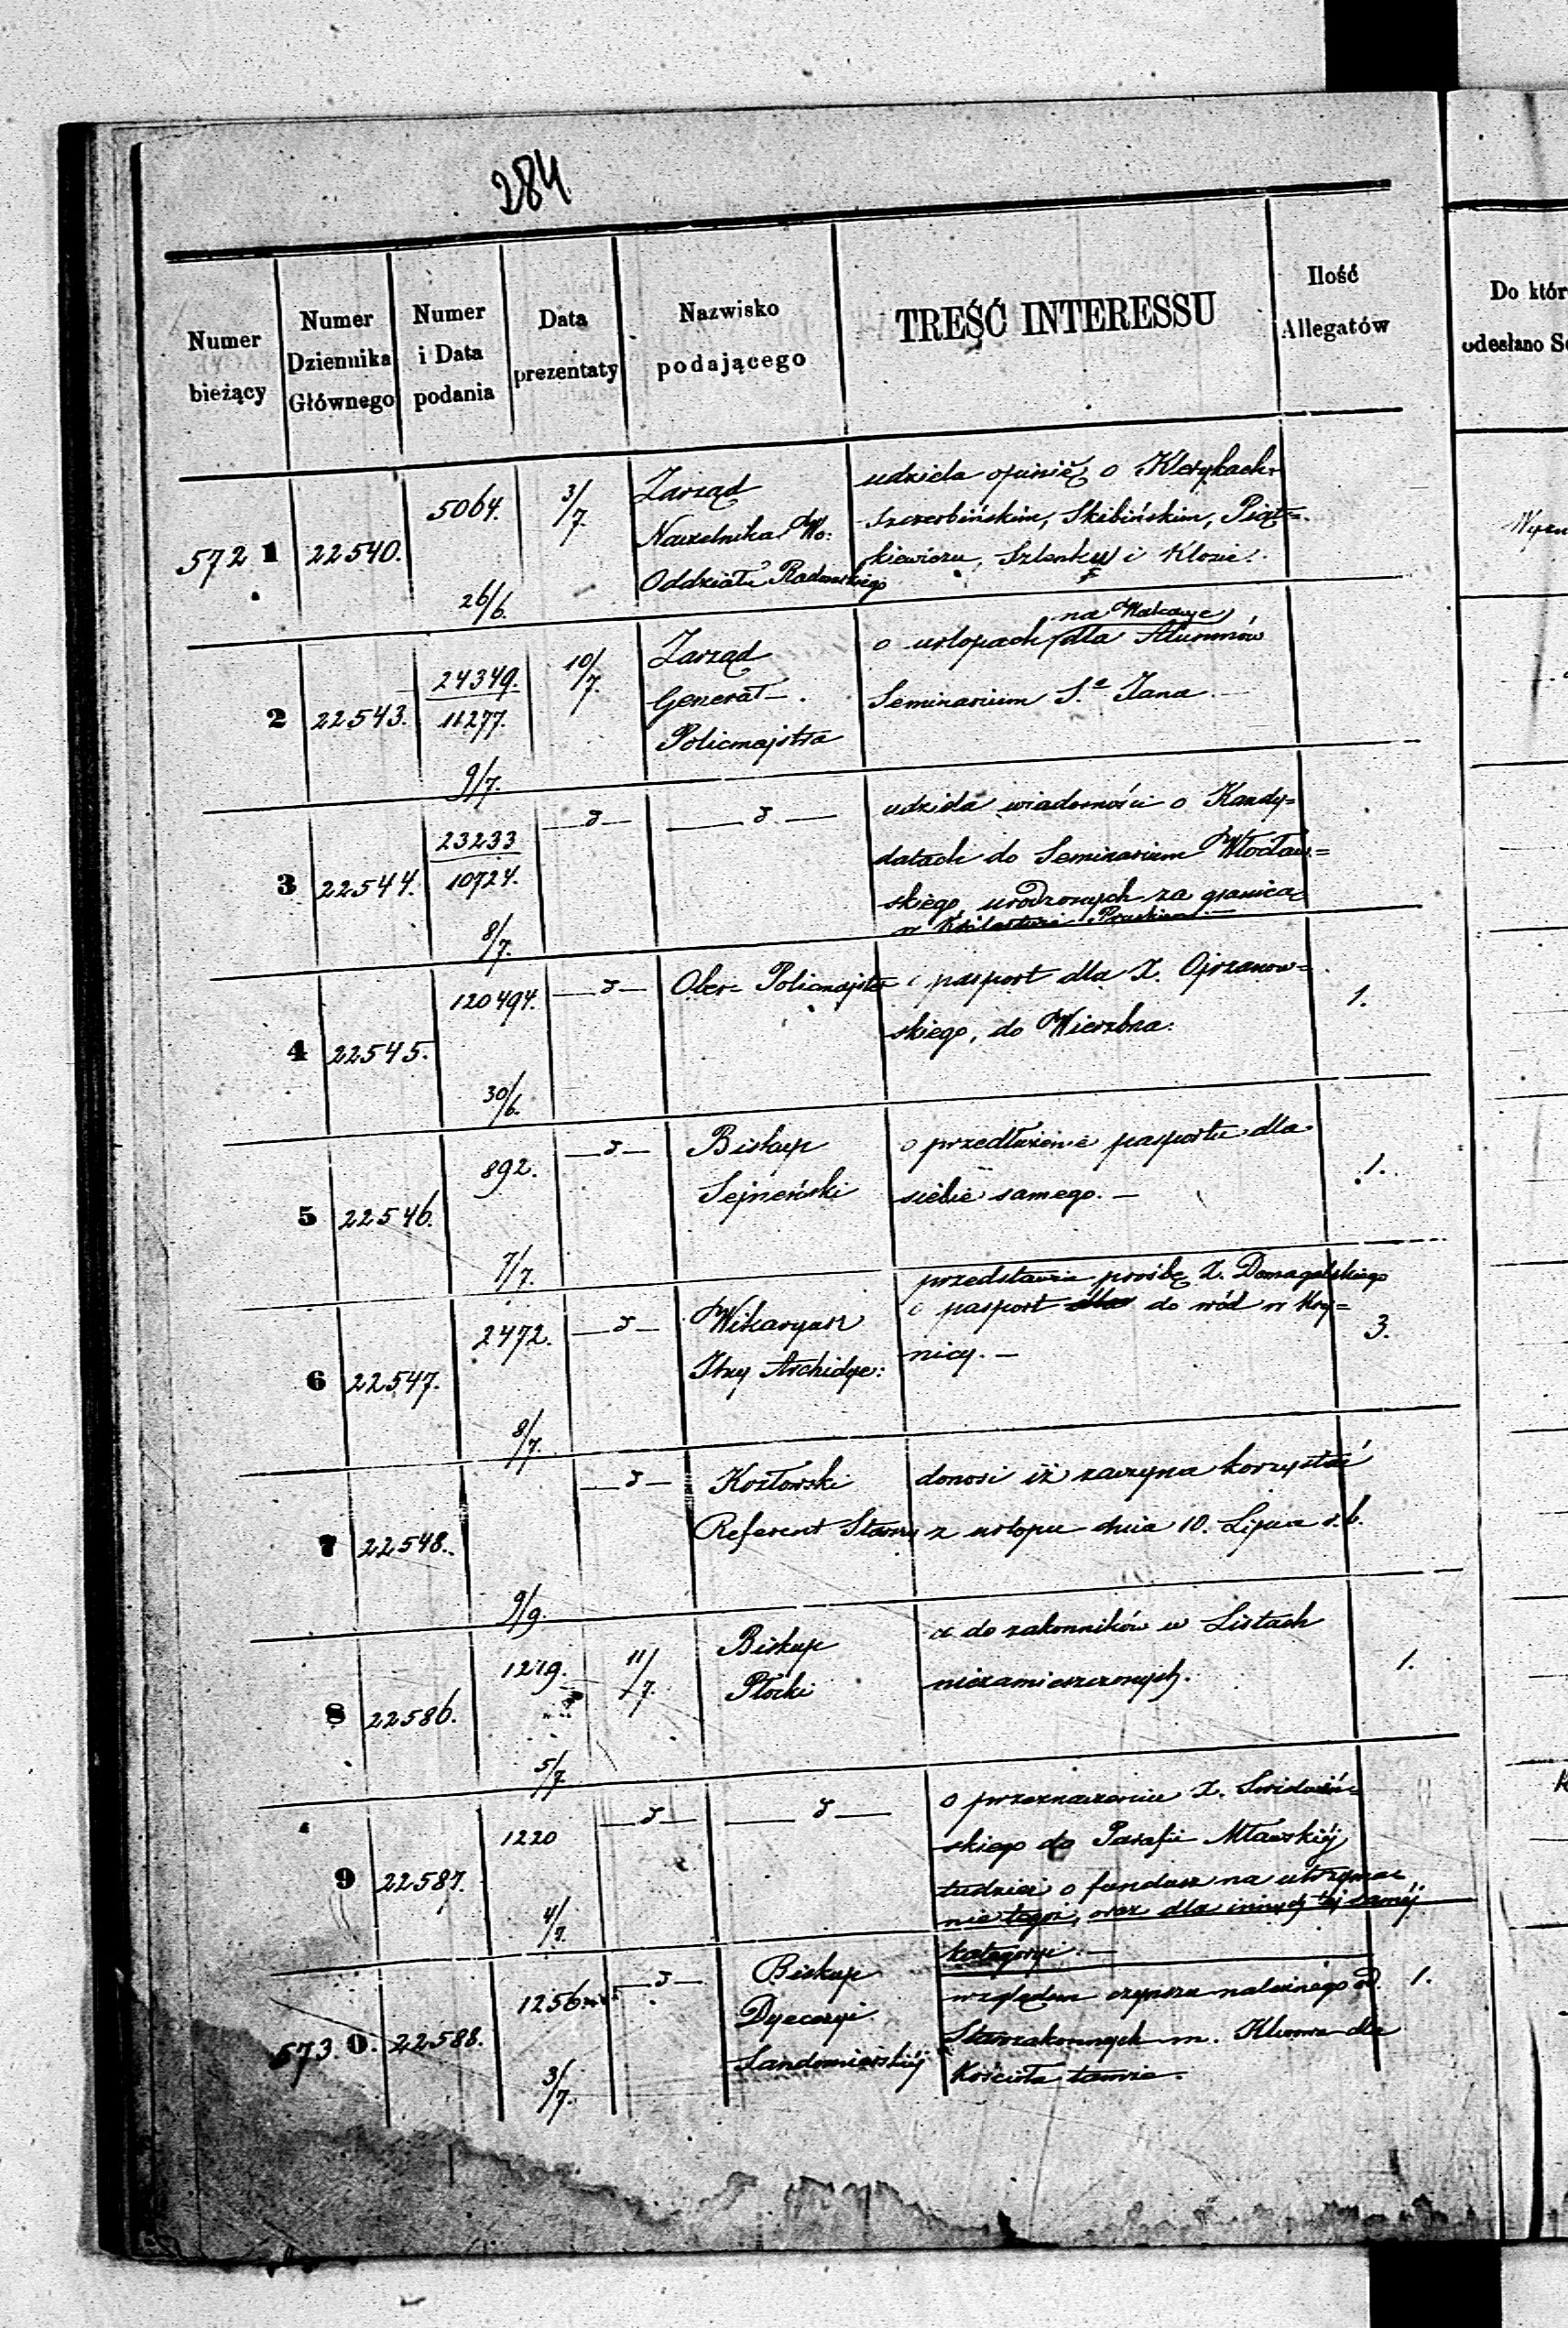 284.
Numer bieżący
Numer Dziennika Głównego
Numer i Data podania
Data prezentaty
Nazwisko podającego
TREŚĆ INTERESSU
Ilość Allegatów
Do któr
odesłano Se
5721 22540. 5064. 26/6. 3/7. Zarząd
Naczelnika Wo:
Oddziału Radomskiego
udziela opinię o Klerykach
Szczerbińskim, Skibińskim, Piąt=
kiewiczu, Szlenku i Klozie.
2 22543. 24349. 11277. 9/7. 10/7. Zarząd
Generał
Policmajstra
o urlopach na Wakacye dla Alumnów
Seminarium S.o Jana.
3 22544. 23233 10724. 8/7. — " — — " —
udziela wiadomości o Kandy=
datach do Seminarium Włocław=
skiego urodzonych za granicą
w Królestwie Pruskiem.
4 22545. 120494. 30/6. — " — Ober= Policmajster
paszport dla X. Ojrzanow=
skiego, do Wierzbna.
1.
5 22546. 892. 7/7. — " — Biskup
Sejneński
o przedłużenie paszportu dla
siebie samego. —
1.
6 22547. 2472. 8/7. — " — Wikaryusz
Tutejszy Archidye:
przedstawia prośbę X. Domagalskiego
o paszport do wód w Kry=
nicy. —
3.
7 22548. 9/9. — " — Kozłowski
Referent Starszy
donosi iż zaczyna korzystać
z urlopu dnia 10. Lipca r. b.
8 22586. 1219. 5/7. 11/7. Biskup
Płocki
co do zakonników w Listach
niezamieszczonych.
1.
9 22587. 1220 4/7. — " — — " —
o przeznaczenie X.
skiego do Parafii Mławskiéj
tudzież o fundusz na utrzyma=
nie tegoż, oraz dla innych téj saméj
kategoryi. —
573.0. 22588. 1256 3/7. — " — Biskup
Dyecezyi
Sandomierskiéj
względem czynszu należnego od
Starozakonnych m. Klwowa dla
Kościoła tamże.
1.